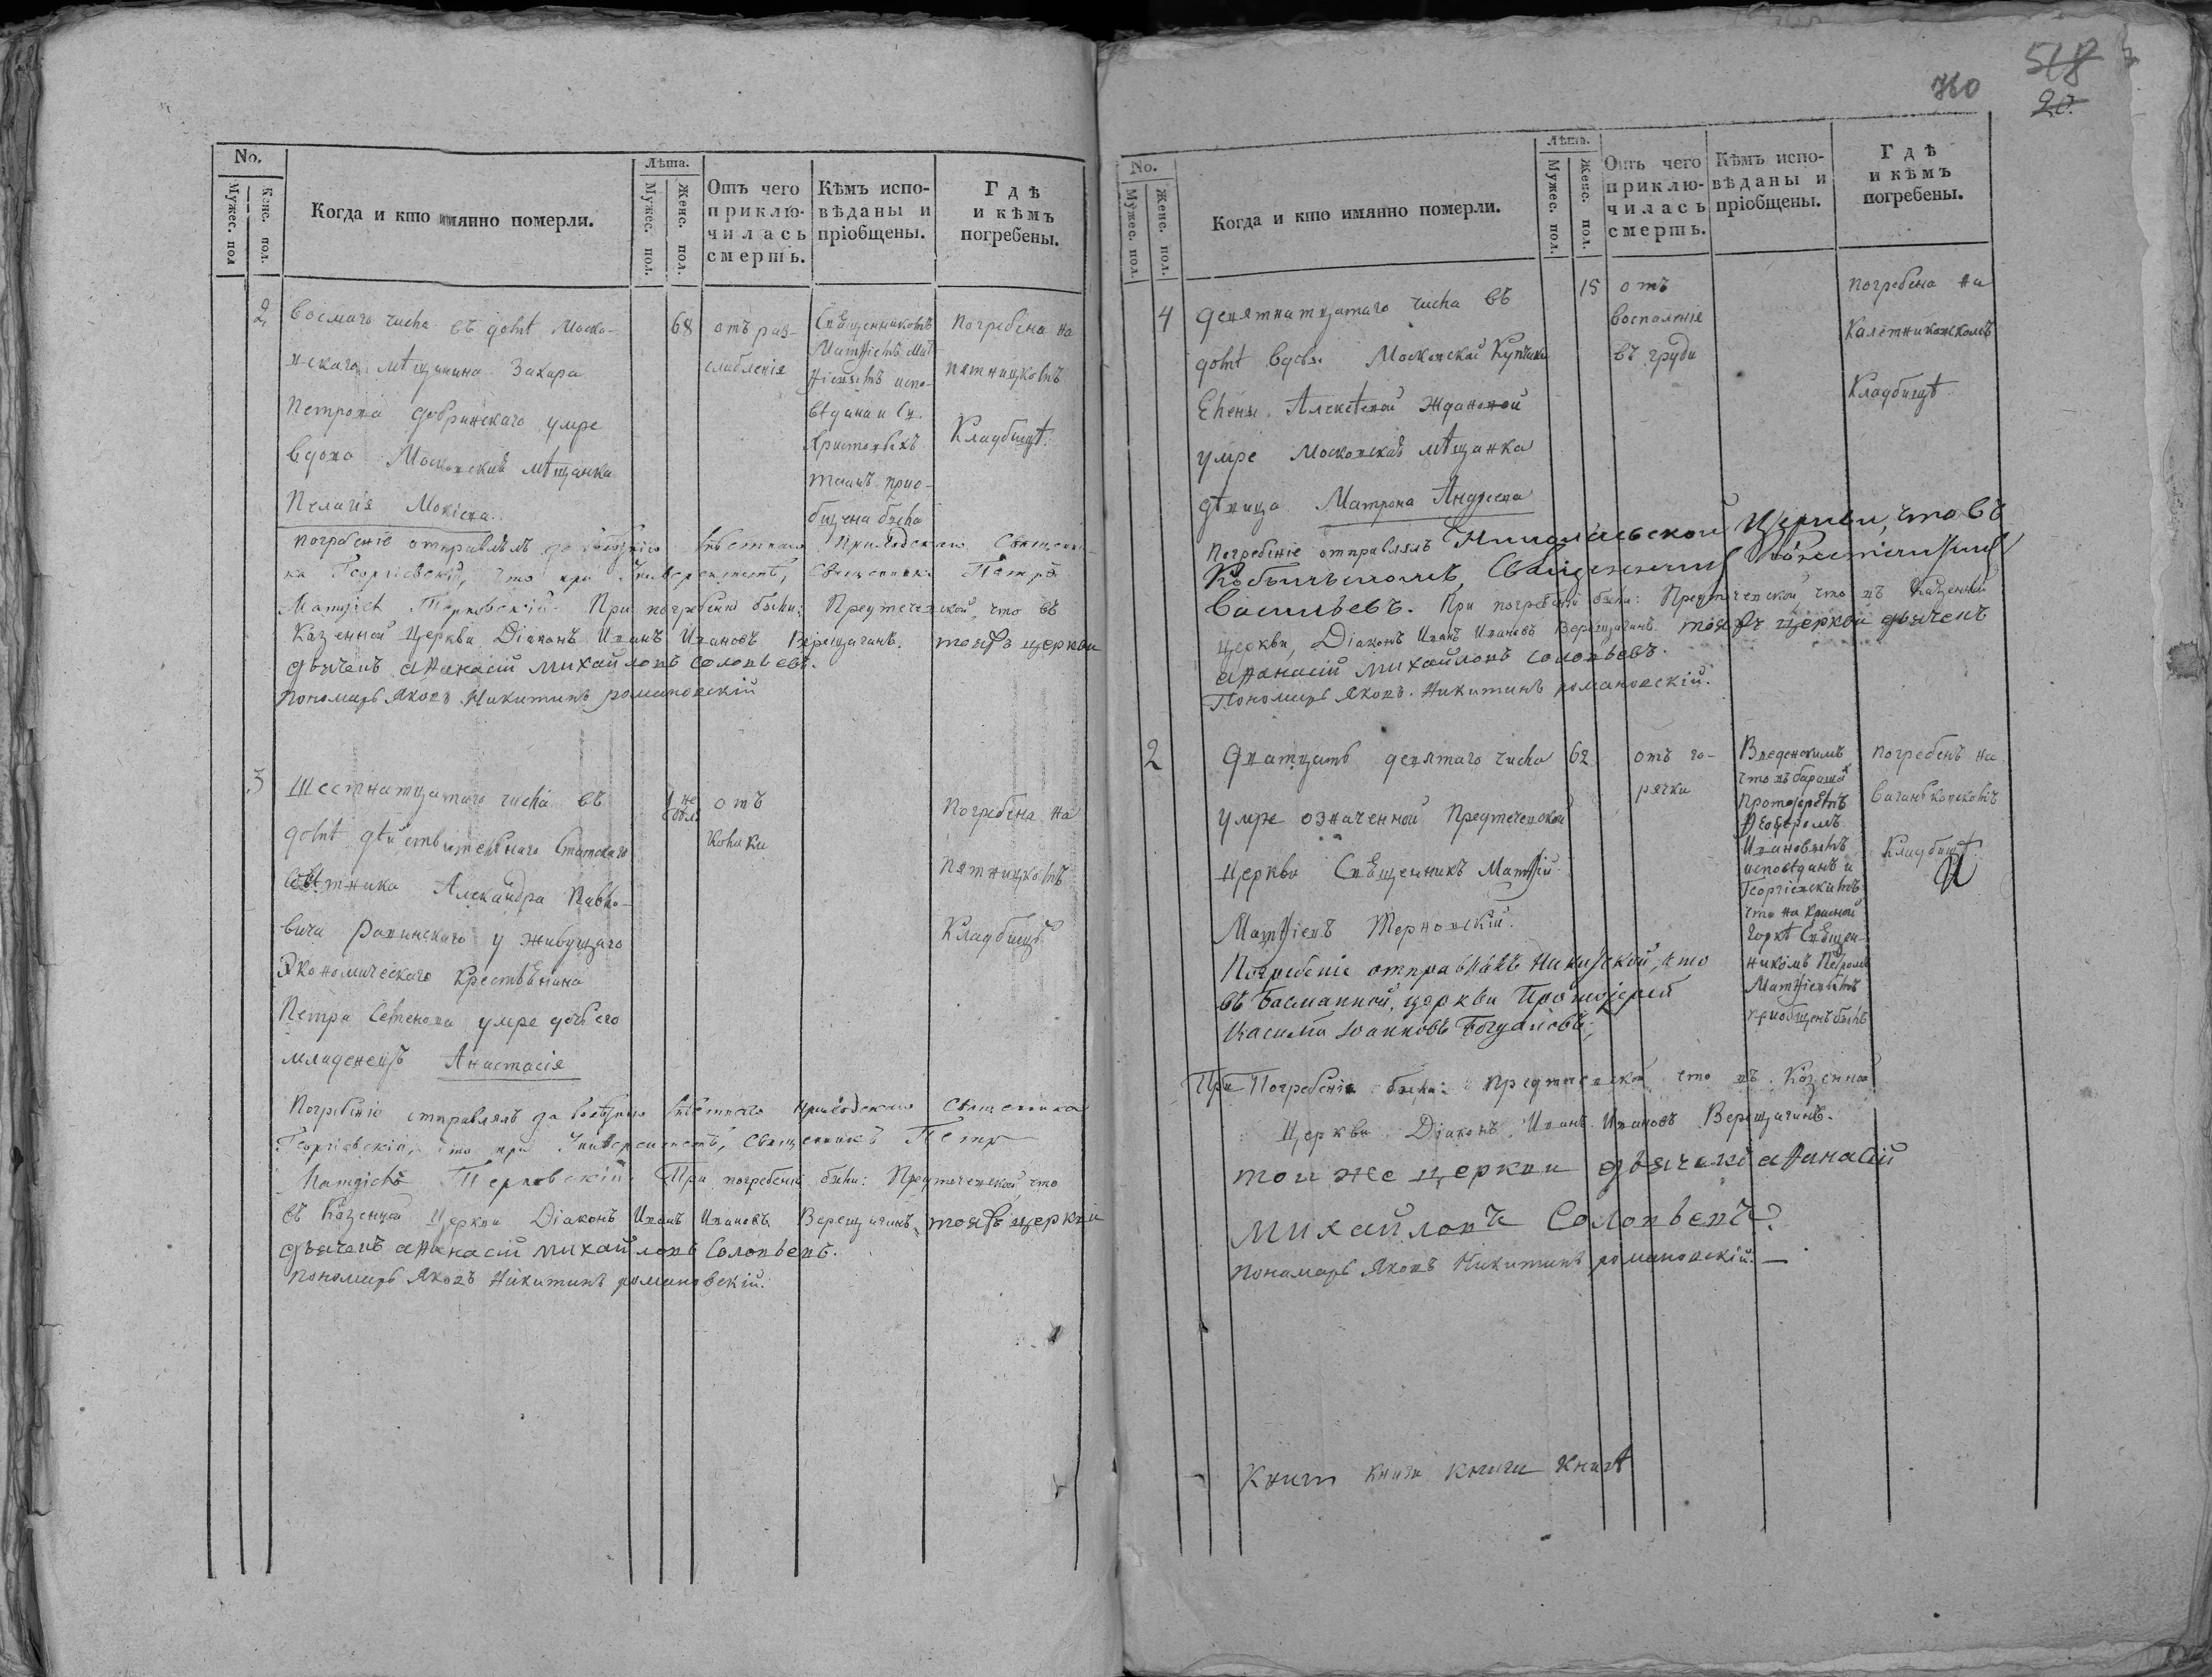 No.
Мужес. пол
Женс. пол.
Когда и кто имянно померли.
Лѣта.
Мужес. пол.
Женс. пол.
Отъ чего
приклю-
чилась
смерть.
Кѣмъ испо-
вѣданы и
пріобщены.
Гдѣ
и кѣмъ
погребены.
2
восмаго числа въ домѣ Моско-
вскаго мѣщанина Захара
Петрова Добринскаго умре
вдова Московская мѣщанка
Пелагія Мокіева
68
отъ раз-
слабленія
Священникомъ
Матѳіемъ Мат-
ѳіевымъ испо-
вѣдана и Св.
Христовыхъ
таинъ прио-
бщена была
Погребена на
пятницкомъ
Кладбищѣ.
погребеніе отправлялъ за болѣзнію мѣстнаго приходскаго Священни-
ка Георгіевскій, что при Университетѣ, Священникъ Петръ
Матѳіевъ Терновскій. При погребеніи были: Предтечевской, что въ
Казенной Церкви Діаконъ Иванъ Ивановъ Верещагинъ. тояжъ церкви
дьячекъ аѳанасій михайловъ соловьевъ.
Пономарь Яковъ Никитинъ романовскій
3
Шестнатцатаго числа въ
домѣ дѣйствительнаго Статскаго
Совѣтника Александра Павло-
вича Рапинскаго у живущаго
Экономическаго Крестьянина
Петра Семенова умре дочь его
младенецъ Анастасія
1 не
дѣл.
отъ
колики
Погребена на
Пятницкомъ
Кладбищѣ
Погребеніе отправлялъ за болѣзнію мѣстнаго приходскаго Священника
Георгіевскій, что при Университетѣ, Священникъ Петръ
Матѳіевъ Терновскій. При погребеніи были: Предтечевской, что
въ Казенной Церкви Діаконъ Иванъ Ивановъ Верещагинъ. тояжъ церкви
дьячекъ аѳанасій михайловъ Соловьевъ.
Пономарь Яковъ Никитинъ романовскій.
518
20.
No.
Мужес. пол.
Женс. пол.
Когда и кто имянно померли.
Лѣта.
Мужес. пол.
Женс. пол.
Отъ чего
приклю-
чилась
смерть.
Кѣмъ испо-
вѣданы и
пріобщены.
Гдѣ
и кѣмъ
погребены.
4
девятнатцатаго числа въ
домѣ вдовы Московской Купчихи
Елены Алексѣевой Ждановой
умре Московская мѣщанка
дѣвица Матрона Андреева
15
отъ
воспаленія
въ груди
погребена на
Калетниковскомъ
Кладбищѣ
Погребеніе отправлялъ Николаевской Церкви, что въ
Кобыльскомъ, Священникъ Константинъ
Васильевъ. При погребеніи были: Предтечевской что въ Казенной
церкви, Діаконъ Иванъ Ивановъ Верещагинъ. тояжъ церкви дьячекъ
аѳанасій михайловъ соловьевъ.
Пономарь Яковъ Никитинъ романовскій.
2
Дватцать девятаго числа
умре означенной Предтечевской
церкви Священникъ Матѳій
Матѳіевъ Терновскій.
62
отъ го-
рячки
Введенскимъ
что въ барашахъ
Протоіереемъ
Ѳеодоромъ
Ивановымъ
исповѣданъ и
Георгіевскимъ
что на Красной
горкѣ Священ-
никомъ Петромъ
Матѳіевымъ
приобщенъ былъ
погребенъ на
Ваганьковскомъ
Кладбищѣ
Погребеніе отправлялъ Никитской, что
въ Басманной, церкви Протоіерей
Іоанновъ Богдановъ,
При Погребеніи были: Предтечевской что въ Казенной
Церкви Діаконъ Иванъ Ивановъ Верещагинъ.
тои же церкви дьячекъ аѳанасій
михайловъ Соловьевъ
Пономарь Яковъ Никитинъ романовскій.
книги книги книги книгѣ